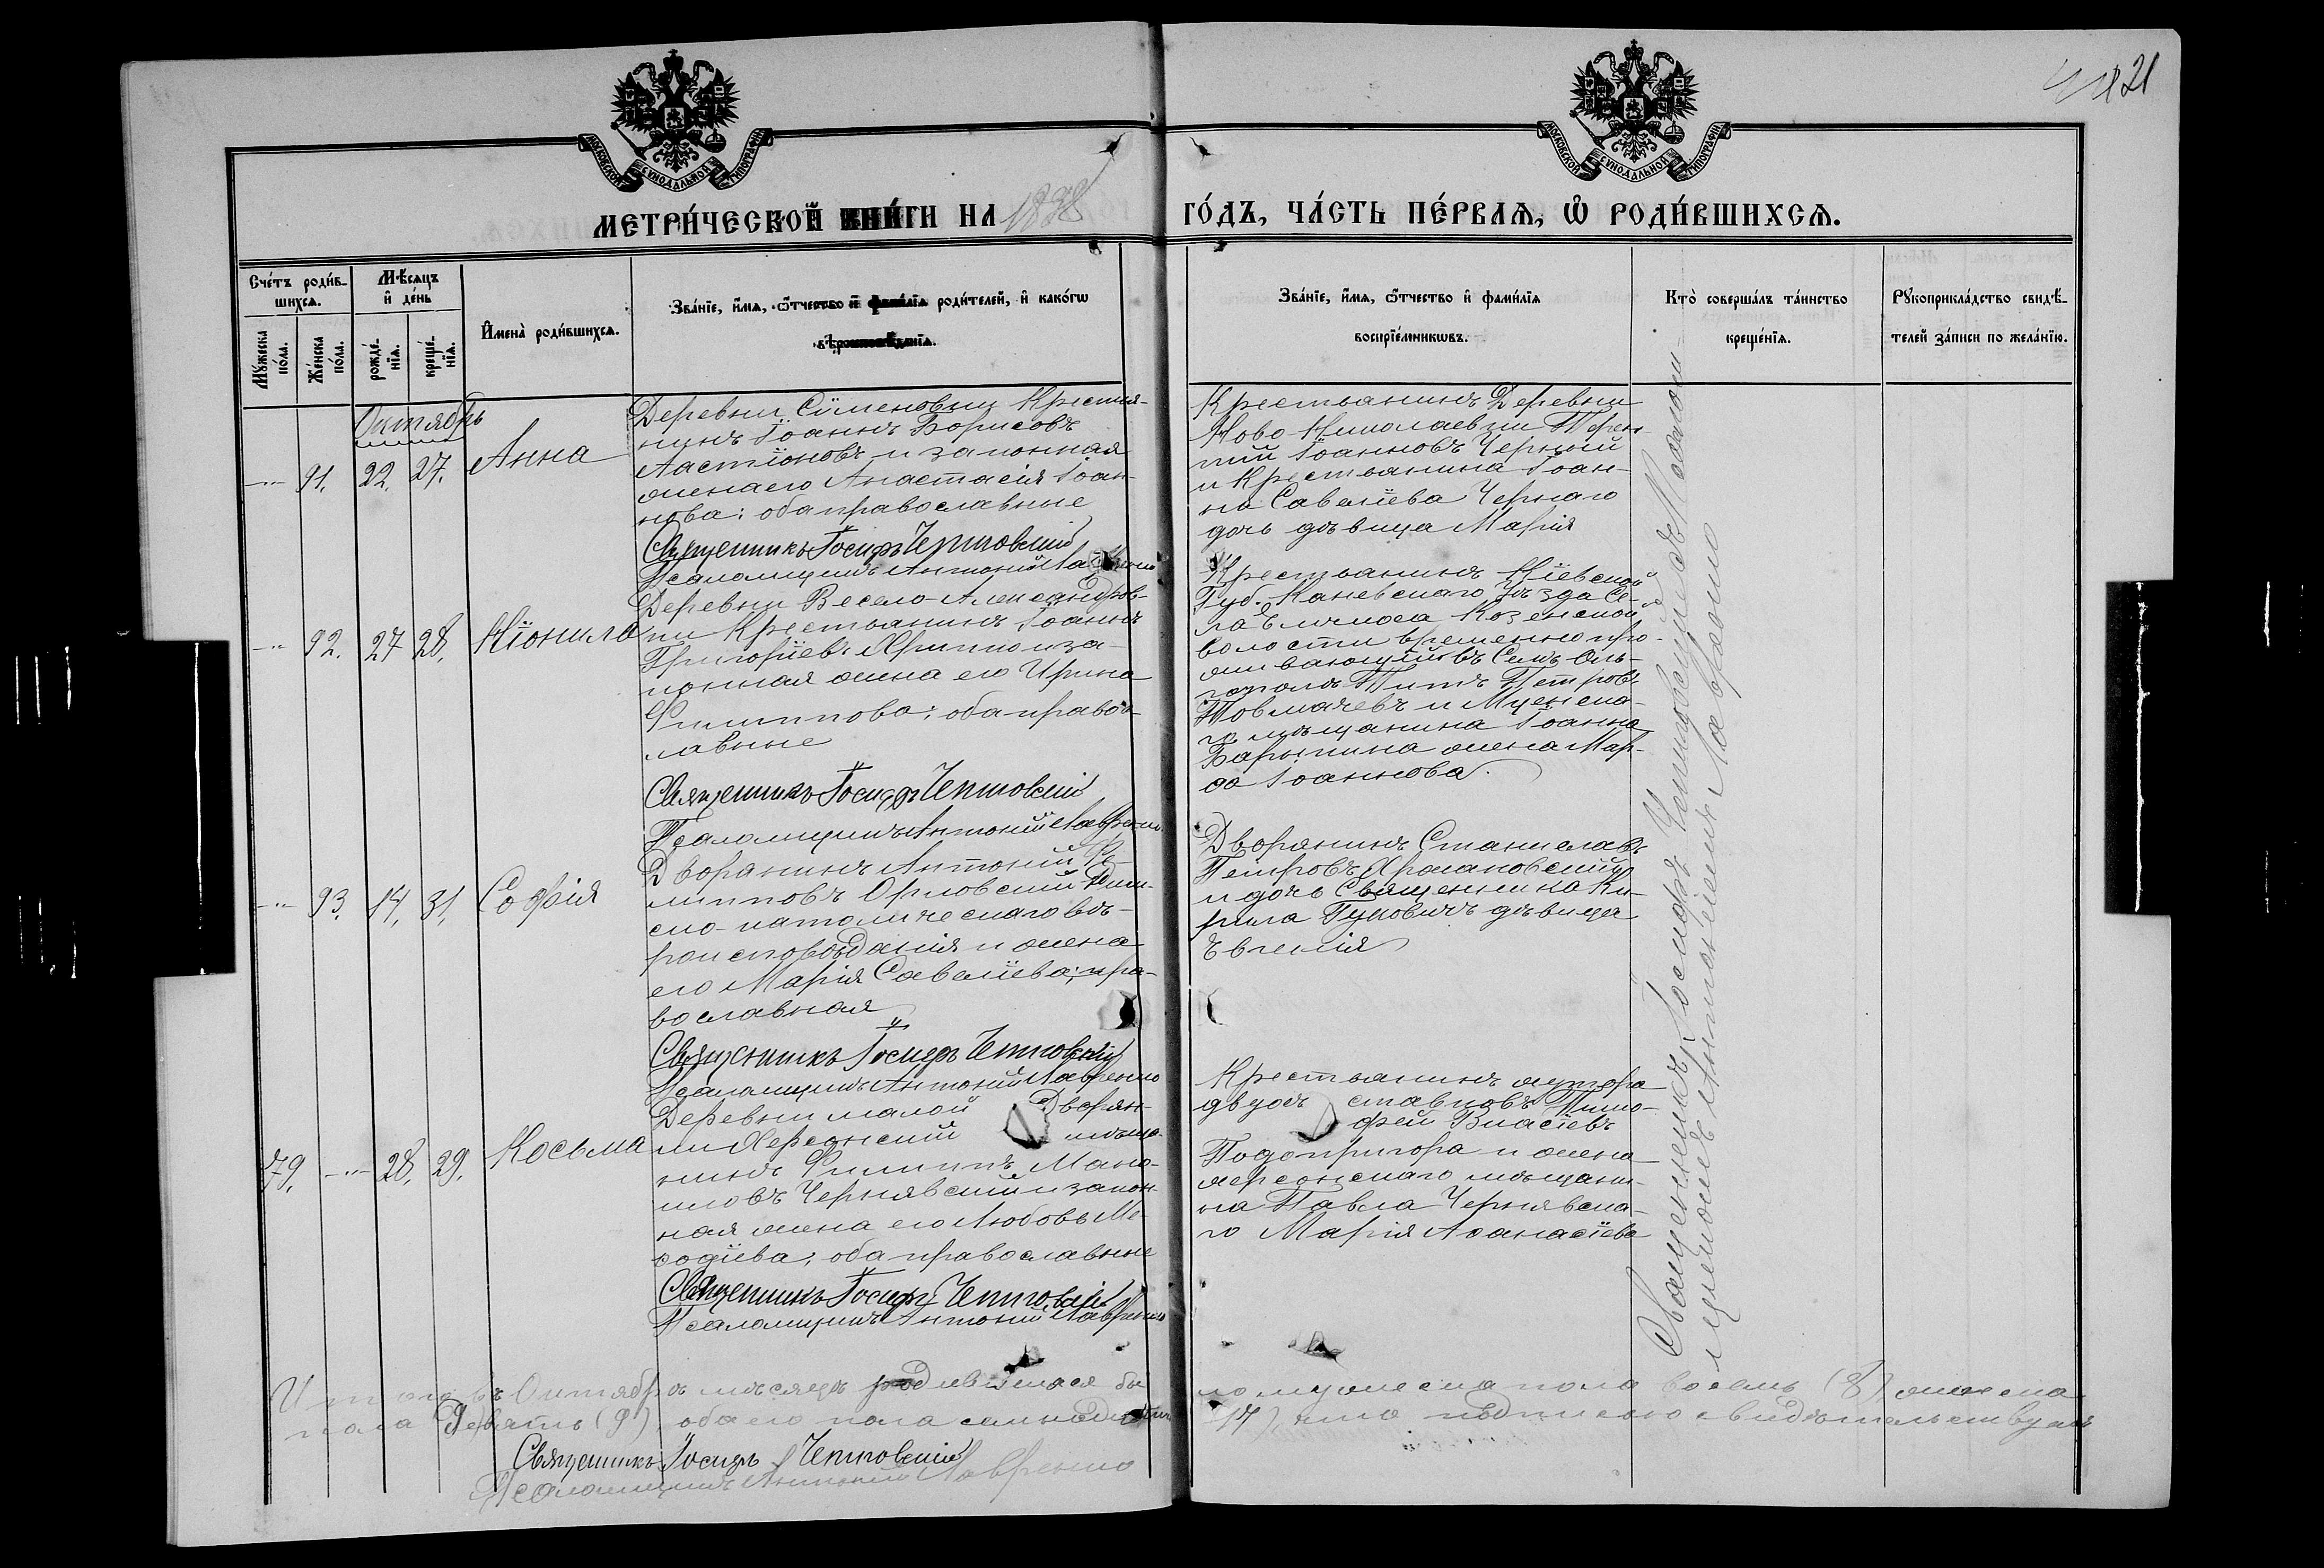 21
МОСКОВСКОЙ СѴНОДАЛЬНОЙ ТИПОГРАФІИ
МОСКОВСКОЙ СѴНОДАЛЬНОЙ ТИПОГРАФІИ
МЕТРИ́ЧЕСКОЙ КНИ́ГИ НА 1898 ГО́ДЪ, ЧА́СТЬ ПЕ́РВАѦ, Ѡ҆ РОДИ́ВШИХСѦ.
Сче́тъ роди́в-
шихсѧ.
Мꙋ́жеска по́ла.
Же́нска по́ла.
Мѣ́сѧцъ
и҆ де́нь
рожде́-
нїѧ.
креще́-
нїѧ.
И҆мена̀ роди́вшихсѧ.
Зва́нїе, и҆́мѧ, ѻ҆́тчество и҆ фами́лїѧ роди́телей, и҆ како́гѡ
вѣроисповѣ́данїѧ.
Зва́нїе, и҆́мѧ, ѻ҆́тчество и҆ фами́лїѧ
воспрїе́мникѡвъ.
Кто̀ соверша́лъ та́инство
креще́нїѧ.
Рꙋкоприкла́дство свидѣ́-
телей за́писи по жела́нїю.
Октябрь
91. 22. 27. Анна
Деревни Сіменовки Крестья-
нинъ Іоаннъ Борисовъ
Ластіоновъ и законная
жена его Анастасія Іоан-
нова; оба православные
Священникъ Іосифъ Чепиговскій
Псаломщикъ Антоній Лавренко
Крестьянинъ Деревни
Ново Николаевки Терен-
тій Іоанновъ Черный
и Крестьянина Іоан-
на Савелиева Чернаго
дочь дѣвица Марія
92. 27 28. Неонила
Деревни Весело-Александров-
ки Крестьянинъ Іоаннъ
Григоріевъ Хрипко и за-
конная жена его Ирина
Филиппова; оба правос-
лавные
Священникъ Іосифъ Чепиговскій
Псаломщикъ Антоній Лавренко
Крестьянинъ Кіевской
Губ. Каневскаго Уѣзда Се-
ла Козенской
волости временно про-
живающій въ Селѣ Оль-
гополѣ Титъ Петровъ
Товмачевъ и Мценска-
го мѣщанина Іоанна
Барыкина жена Мар-
ѳа Іоаннова.
93. 14. 31. Софія
Дворянинъ Антоній Фи-
липповъ Орловскій Рим-
ско-католическаго вѣ-
роисповѣданія и жена
его Марія Савелиева; пра-
вославная
Священникъ Іосифъ Чепиговскій
Псаломщикъ Антоній Лавренко
Дворянинъ Станиславъ
Петровъ Хржановскій
и дочь Священника Ки-
рила Гуковичъ дѣвица
Евгенія
79. 28. 29. Косьма
Деревни малой Дворян-
ки Херсонскій мѣща-
нинъ Филиппъ Мано-
иловъ Чернявскій и закон-
ная жена его Любовь Ме-
ѳодіева; оба православные
Священникъ Іосифъ Чепиговскій
Псаломщикъ Антоній Лавренко
Крестьянинъ хутора
двухъ ставковъ Тимо-
фей Власіевъ
Подопригора и жена
херсонскаго мѣщани-
на Павла Чернявска-
го Марія Аѳанасіева
Священникъ Іосифъ Чепиговскій съ Псалом-
щикомъ Антоніемъ Лавренко
Итого въ Октябрѣ мѣсяцѣ родившихся бы-
ло мужеска пола восемь (8), женска
пола девять (9), обаего пола семнадцать
(17), что подписью свидѣтельствуемъ
Священникъ Іосифъ Чепиговскій
Псаломщикъ Антоній Лавренко